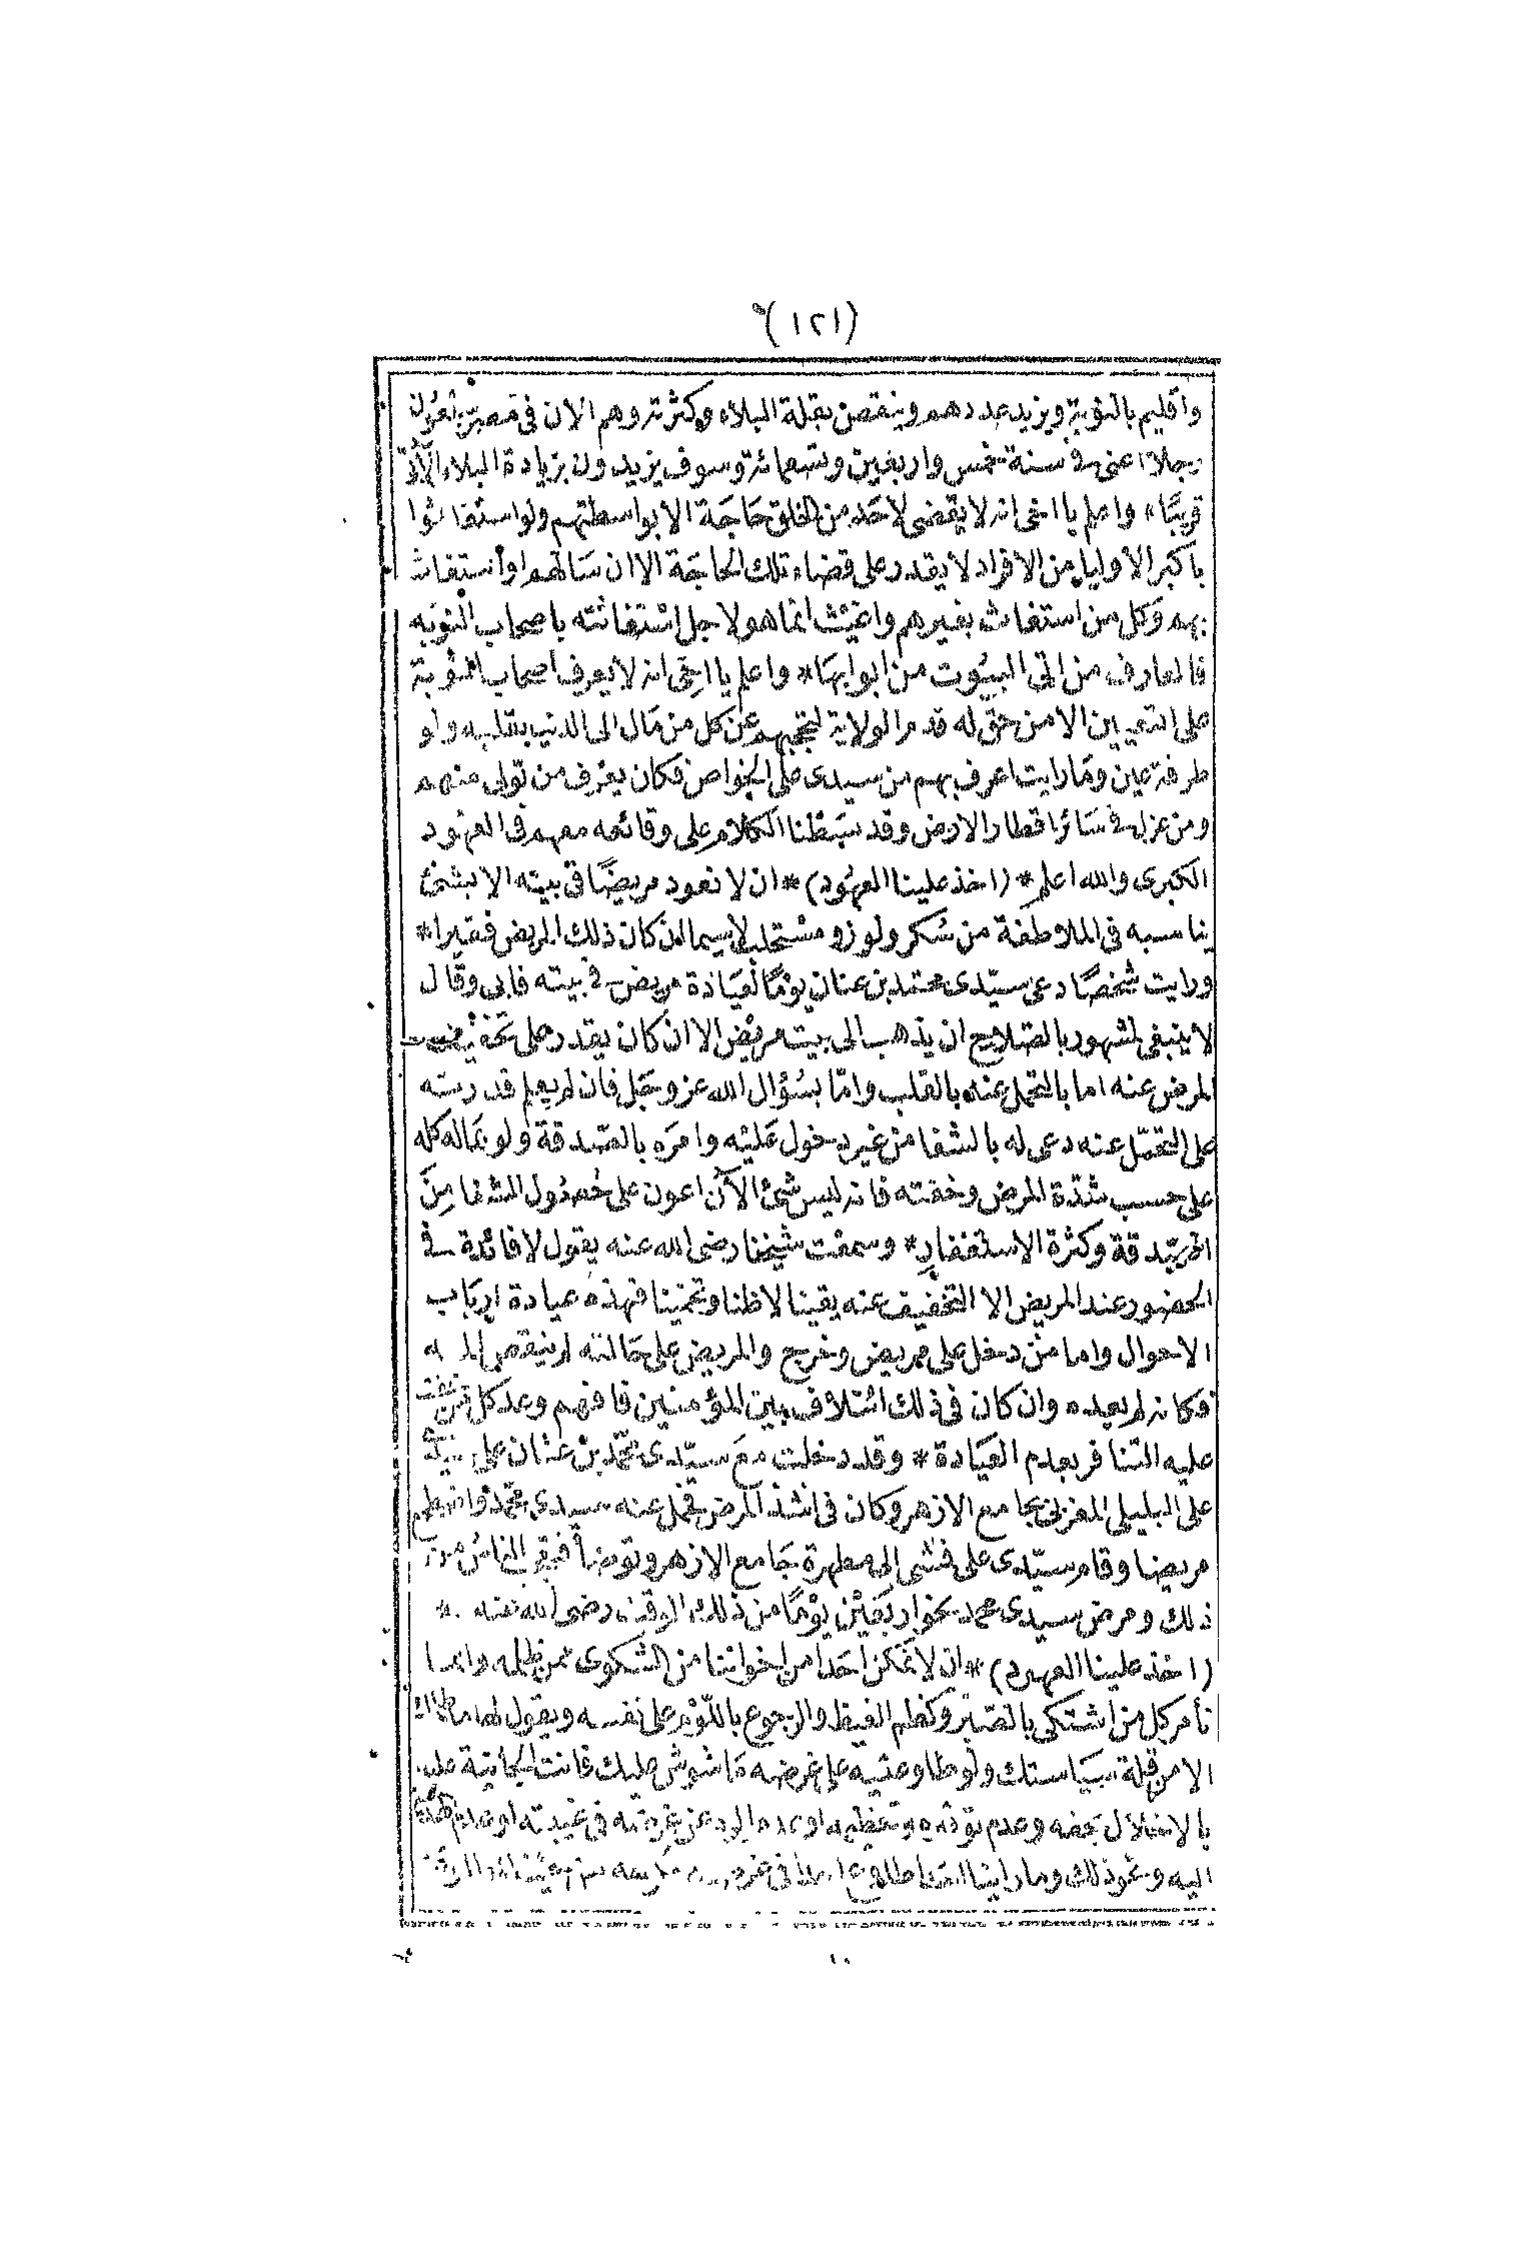 (١٢١)
واقليم بالنوبة ويزيد عددهم وينقص بقلة البلاء وكثرته وهم الان فى مصر
رجلا اعنى فى سنة خمس واربعين وتسعمائة وسوف يزيدون بزيادة البلاء الآتى
قريبًا* واعلم يا اخى انه لا يقضى لاحد من الخلق حَاجَة الا بواسطتهم ولو استغاثوا
باكبر الاولياء من الافراد لا يقدر على قضاء تلك الحاجَة الا ان سَالهم او استغاث
بهم وَكل من استغاث بغيرهم واغيث انما هو لاجل استغاثته باصحاب النوبه
فالعارف من اتى البيُوت من ابوابهَا* واعلم يا اخِى انه لا يعرف اصحاب النوبة
على التعيين الا من حق له قدم الولاية لتحجبهم عن كل من مَال الى الدنيا بقلبه ولو
طرفة عين ومَا رايت اعرف بهم من سيدى على الخواص فكان يعرف من تولى منهم
ومن عزل فى سَائر اقطار الارض وقد بَسَطنا الكلام على وقائعه معهم فى العهود
الكبرى والله اعلم* (اخذ علينا العهُود)* ان لا نعود مريضًا فى بيته الا بشئ
يناسبه فى الملاطفة من سُكر ولوز ومستحلب لا سيما ان كان ذلك المريض فقيرا*
ورايت شخصًا دعى سيّدى محمد بن عنان يَوْمًا لعيَادة مريض فى بيته فابى وقال
لا ينبغى لمشهور بالصّلاح ان يذهب الى بيت مريض الا ان كان يقدر على تخفيف
المرض عنه اما بالتحمل عنه بالقلب وامّا بسُؤال الله عز وجَل فان لم يعلم قدرته
على التحمّل عنه دعى له بالشفا من غير دخول عَليْه وامرَه بالصّدقة ولو بمَاله كله
على حسب شدّة المرض وخفته فانه ليس شئ الآن اعون على حُصُول الشفا مِنَ
الصّدقة وكثرة الاستغفار* وسمعت شيخنا رضى الله عنه يقول لا فائدة فى
الحضور عند المريض الا التخفيف عنه يقينا لا ظنا وتخمينا فهذه عيادة اربَاب
الاحوال واما من دخل على مريض وخرج والمريض على حَالته لم ينقص
فكانه لم يعده وان كان فى ذلك ائتلاف بين المؤمنين فافهم وعد كل من
عليه التنافر بعدم العيَادة* وقد دخلت مع سيّدى محمّد بن عنان على
على البلبلى المغربى بجامع الازهر وكان فى اشد المرض فحمل عنه سيدى محمّد واضطجع
مريضا وقام سيّدى على فمشى الى مطهرة جَامع الازهر وتوضأ فتعجب الناسُ من
ذلك ومرض سيدى محمد نحو اربَعِيْن يَوْمًا من ذلك الوقت رضى الله عنه *
(اخذ علينا العهود)* ان لا نمَكن احَدا من اخواننا من الشكوى ممن ظلمه وانما
نأمر كل من اشتكى بالصّبر وكظم الغيظ والرجوع باللّوْم على نفسه ويقول لها
الا من قلة سيَاستك ولو طاوعتيه على غرضه مَا شوش عليك فانت الجَانية عليه
بالاخلال بحقه وعدم وتعظيمه او عدم الرد عن فى غيبته او عدم
اليه ونحو ذلك وما راينا احَدا طاوع